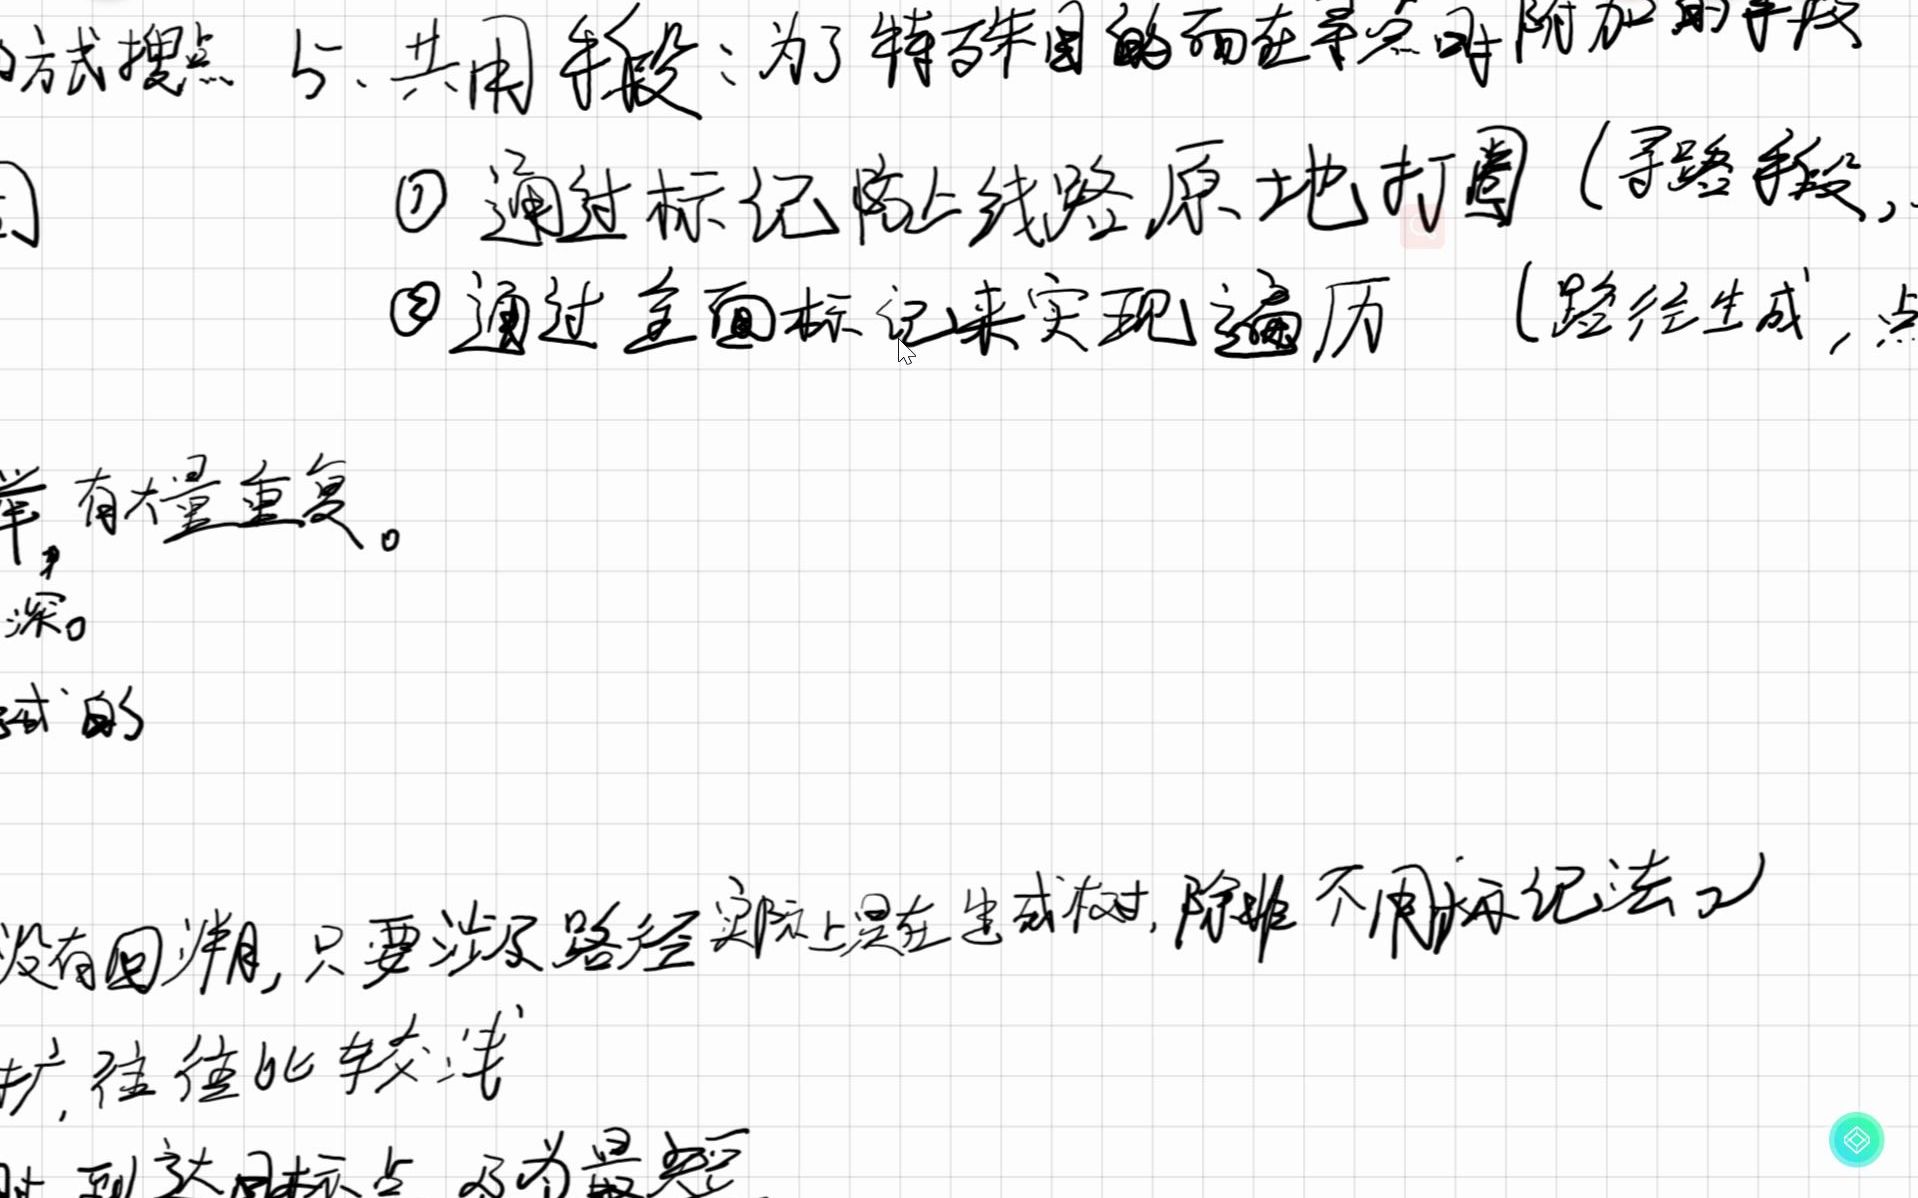 方式搜点 5、共用手段：为了特殊目的而在寻点时附加的手段
① 通过标记防止线路原地打圈（寻路手段，
② 通过全面标记来实现遍历（路径生成，点
有大量重复。
深。
试的
没有回溯，只要涉及路径实际上是在生成树，除非不用标记法
扩，往往比较浅
时到达目标点 为最短